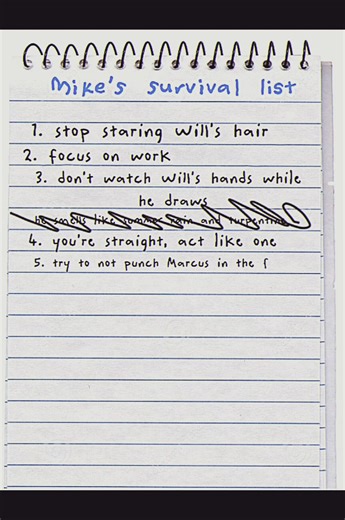 Mike's survival list
1. stop staring Will's hair
2. focus on work
3. don't watch Will's hands while
he draws
he smells like summer rain and turpentine
4. you're straight, act like one
5. try to not punch Marcus in the f